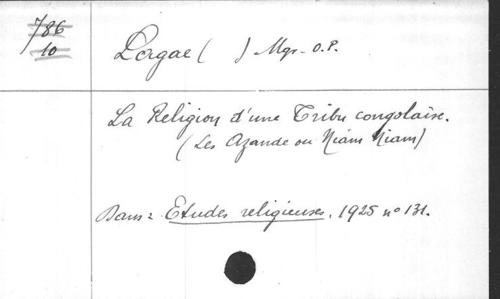 786
10
Lagae ( ) Mgr. O.P.
La Religion d'une Tribu congolaise.
(Les Azande ou Niam Niam)
Dans : Etudes religieuses, 1925 no 131.